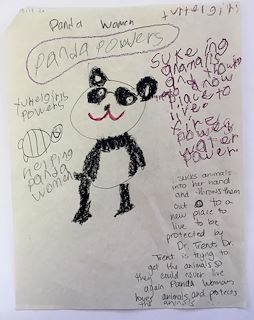 Panda Women
Panda Powers
turtelgirls
powers
helping
panda
women
turtelgirls
sukeing
anamals
and throw
to a now
place to
live
fire
powers
water
power
sucks animals
into her hand
and throws them
out to a
new place to
live to be
protected by
Dr. Trent. Dr.
Trent is trying to
get the animals so
they could never live
again Panda Woman
loves animals and protects
the animals